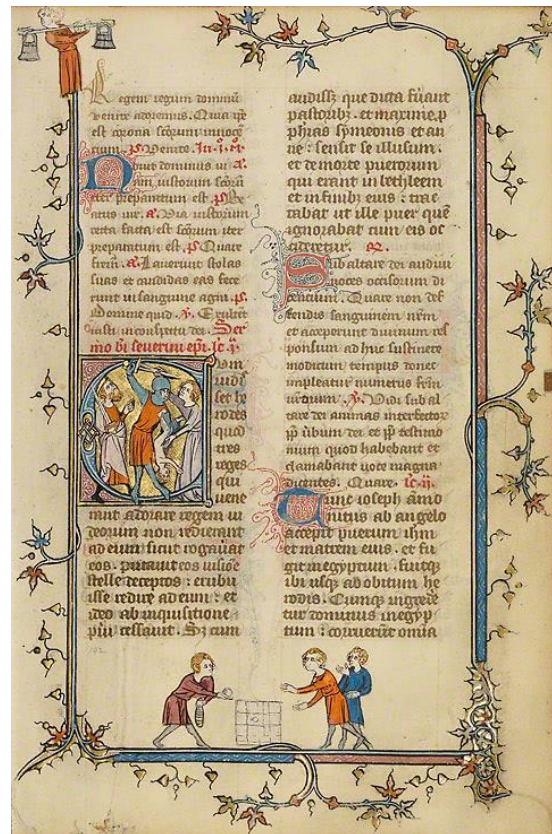 Regem regum dominū
venite adoremus. Quia ipse
est corona scōrum
N
iter preparatum est. p̄s. Be
atus vir. a. Via iustorum
recta facta est scōrum iter
preparatum est. p̄s. Quare
frem̄. a. Laverunt stolas
suas et candidas eas fece
runt in sanguine agni. p̄s.
Domine quid. v. Exultent
iusti in conspectu dei. Ser
mo bī severini ep̄i. lc̄. i.
Cum
vidis
set he
rodes
quod
tres
reges
qui
vene
rant adorare regem iu
deorum non redierant
ad eum sicut rogaverat
eos. putavit eos visiōe
stelle deceptos: erubu
isse redire ad eum: et
ideo ab inquisitione
pueri cessavit. Sꝫ cum
audissꝫ que dicta fuerant
pastoribꝫ. et maxime p̄
phias symeonis et an
ne: sensit se illusum.
et de morte puerorum
qui erant in bethleem
et in finibꝫ eius: trac
tabat ut ille puer quē
ignorabat cum eis oc
cideretur. R̄.
Sub altare dei audivi
voces occisorum di
centium. Quare non def
fendis sanguinem nr̄m
et acceperunt divinum res
ponsum adhuc sustinere
modicum tempus donec
impleatur numerus fr̄m
vr̄orum. v. Vidi sub al
tare dei animas interfector
p̄p̄ verbum dei et p̄p̄ testimo
nium quod habebant et
clamabant voce magna
dicentes. Quare. lc̄. ii.
Tunc ioseph āmo
nitus ab angelo
accepit puerum ihm̄
et matrem eius. et fu
git in egyptum. fuitqꝫ
ibi usqꝫ ad obitum he
rodis. Cumqꝫ ingrede
tur dominus in egyp
tum: corruerūt omnia